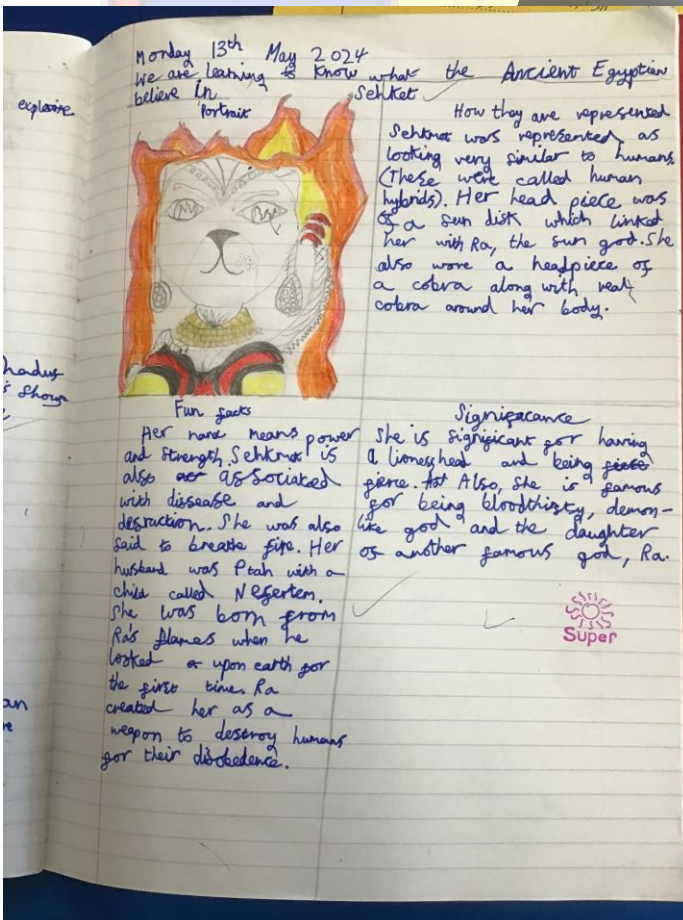 Monday 13th May 2024
We are learning to know what the Ancient Egyptian
believe in
Sehket
explosive
Portrait
How they are represented
Sehkmet was represented as
looking very similar to humans
(These were called human
hybrids). Her head piece was
of a sun disk which linked
her with Ra, the sun god. She
also wore a headpiece of
a cobra along with real
cobra around her body.
hadus
s show
Fun facts
Her name means power
and strength. Sehkmet is
also associated
with dissease and
desruction. She was also
said to breathe fire. Her
husband was Ptah with a
child called Nefertem.
She was born from
Ra's flames when he
looked upon earth for
the first time. Ra
created her as a
weapon to destroy humans
for their disobedence.
Significance
She is significant for having
a lioness head and being
fierce. Also, she is famous
for being bloodthirsty, demon-
like god and the daughter
of another famous god, Ra.
Super
an
re